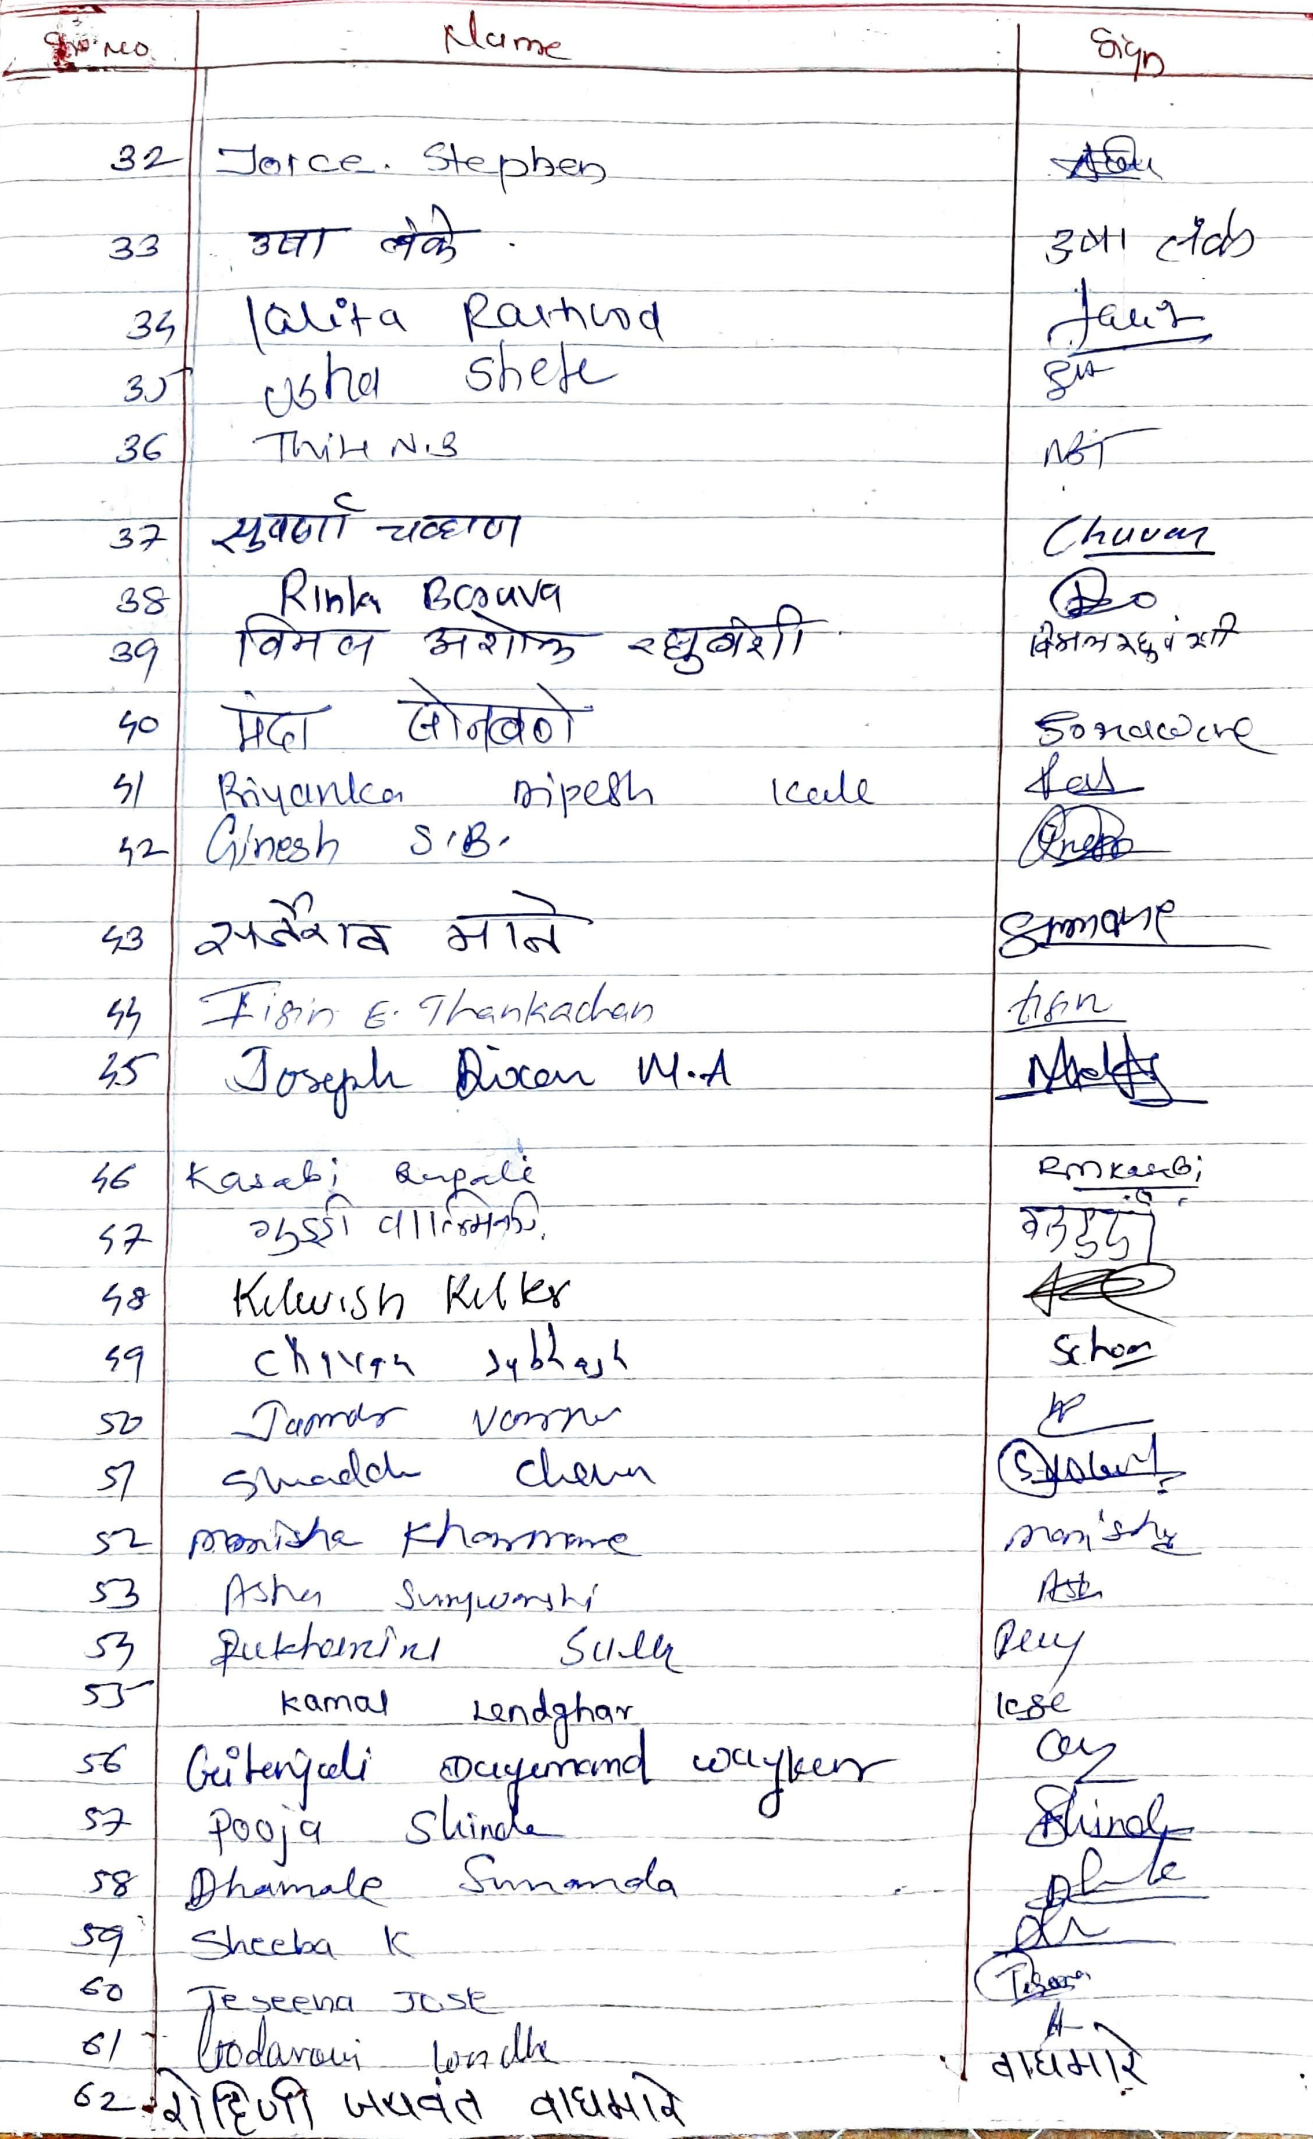 Sr. No. Name Sign
32 Joice. Stephen
33 उषा लंके. उषा लंके
34 lalita Rathod
35 Usha Shete
36 N.B NBT
37 सुवर्णा चव्हाण Chavan
38 Rinku Barua
39 विमल अशोक रघुवंशी विमल रघुवंशी
40 मंदा सोनवणे Sonawane
41 Priyanka Dipesh Kale
42 Ginesh S.B.
43 सर्जेराव माने Smmane
44 Tisin E. Thankachan tisin
45 Joseph Dixon M.A
46 Kasabi Bengali RMKasabi
47 गुड्डी वाल्मिकी.
48 Kilwish Killer
49 Chavan Subhash
50
51
52 Manisha Kharmare Manisha
53 Asha Suryawanshi Asha
54 Rukhamini
55 Kamal Lendghar
56 Gitanjali Dayanand Waykar
57 Pooja Shinde Shinde
58 Dhamale Sunanda
59 Sheeba K
60 Jeseena Jose
61 Godavari Londhe
62 रोहिणी जयवंत वाघमारे वाघमारे